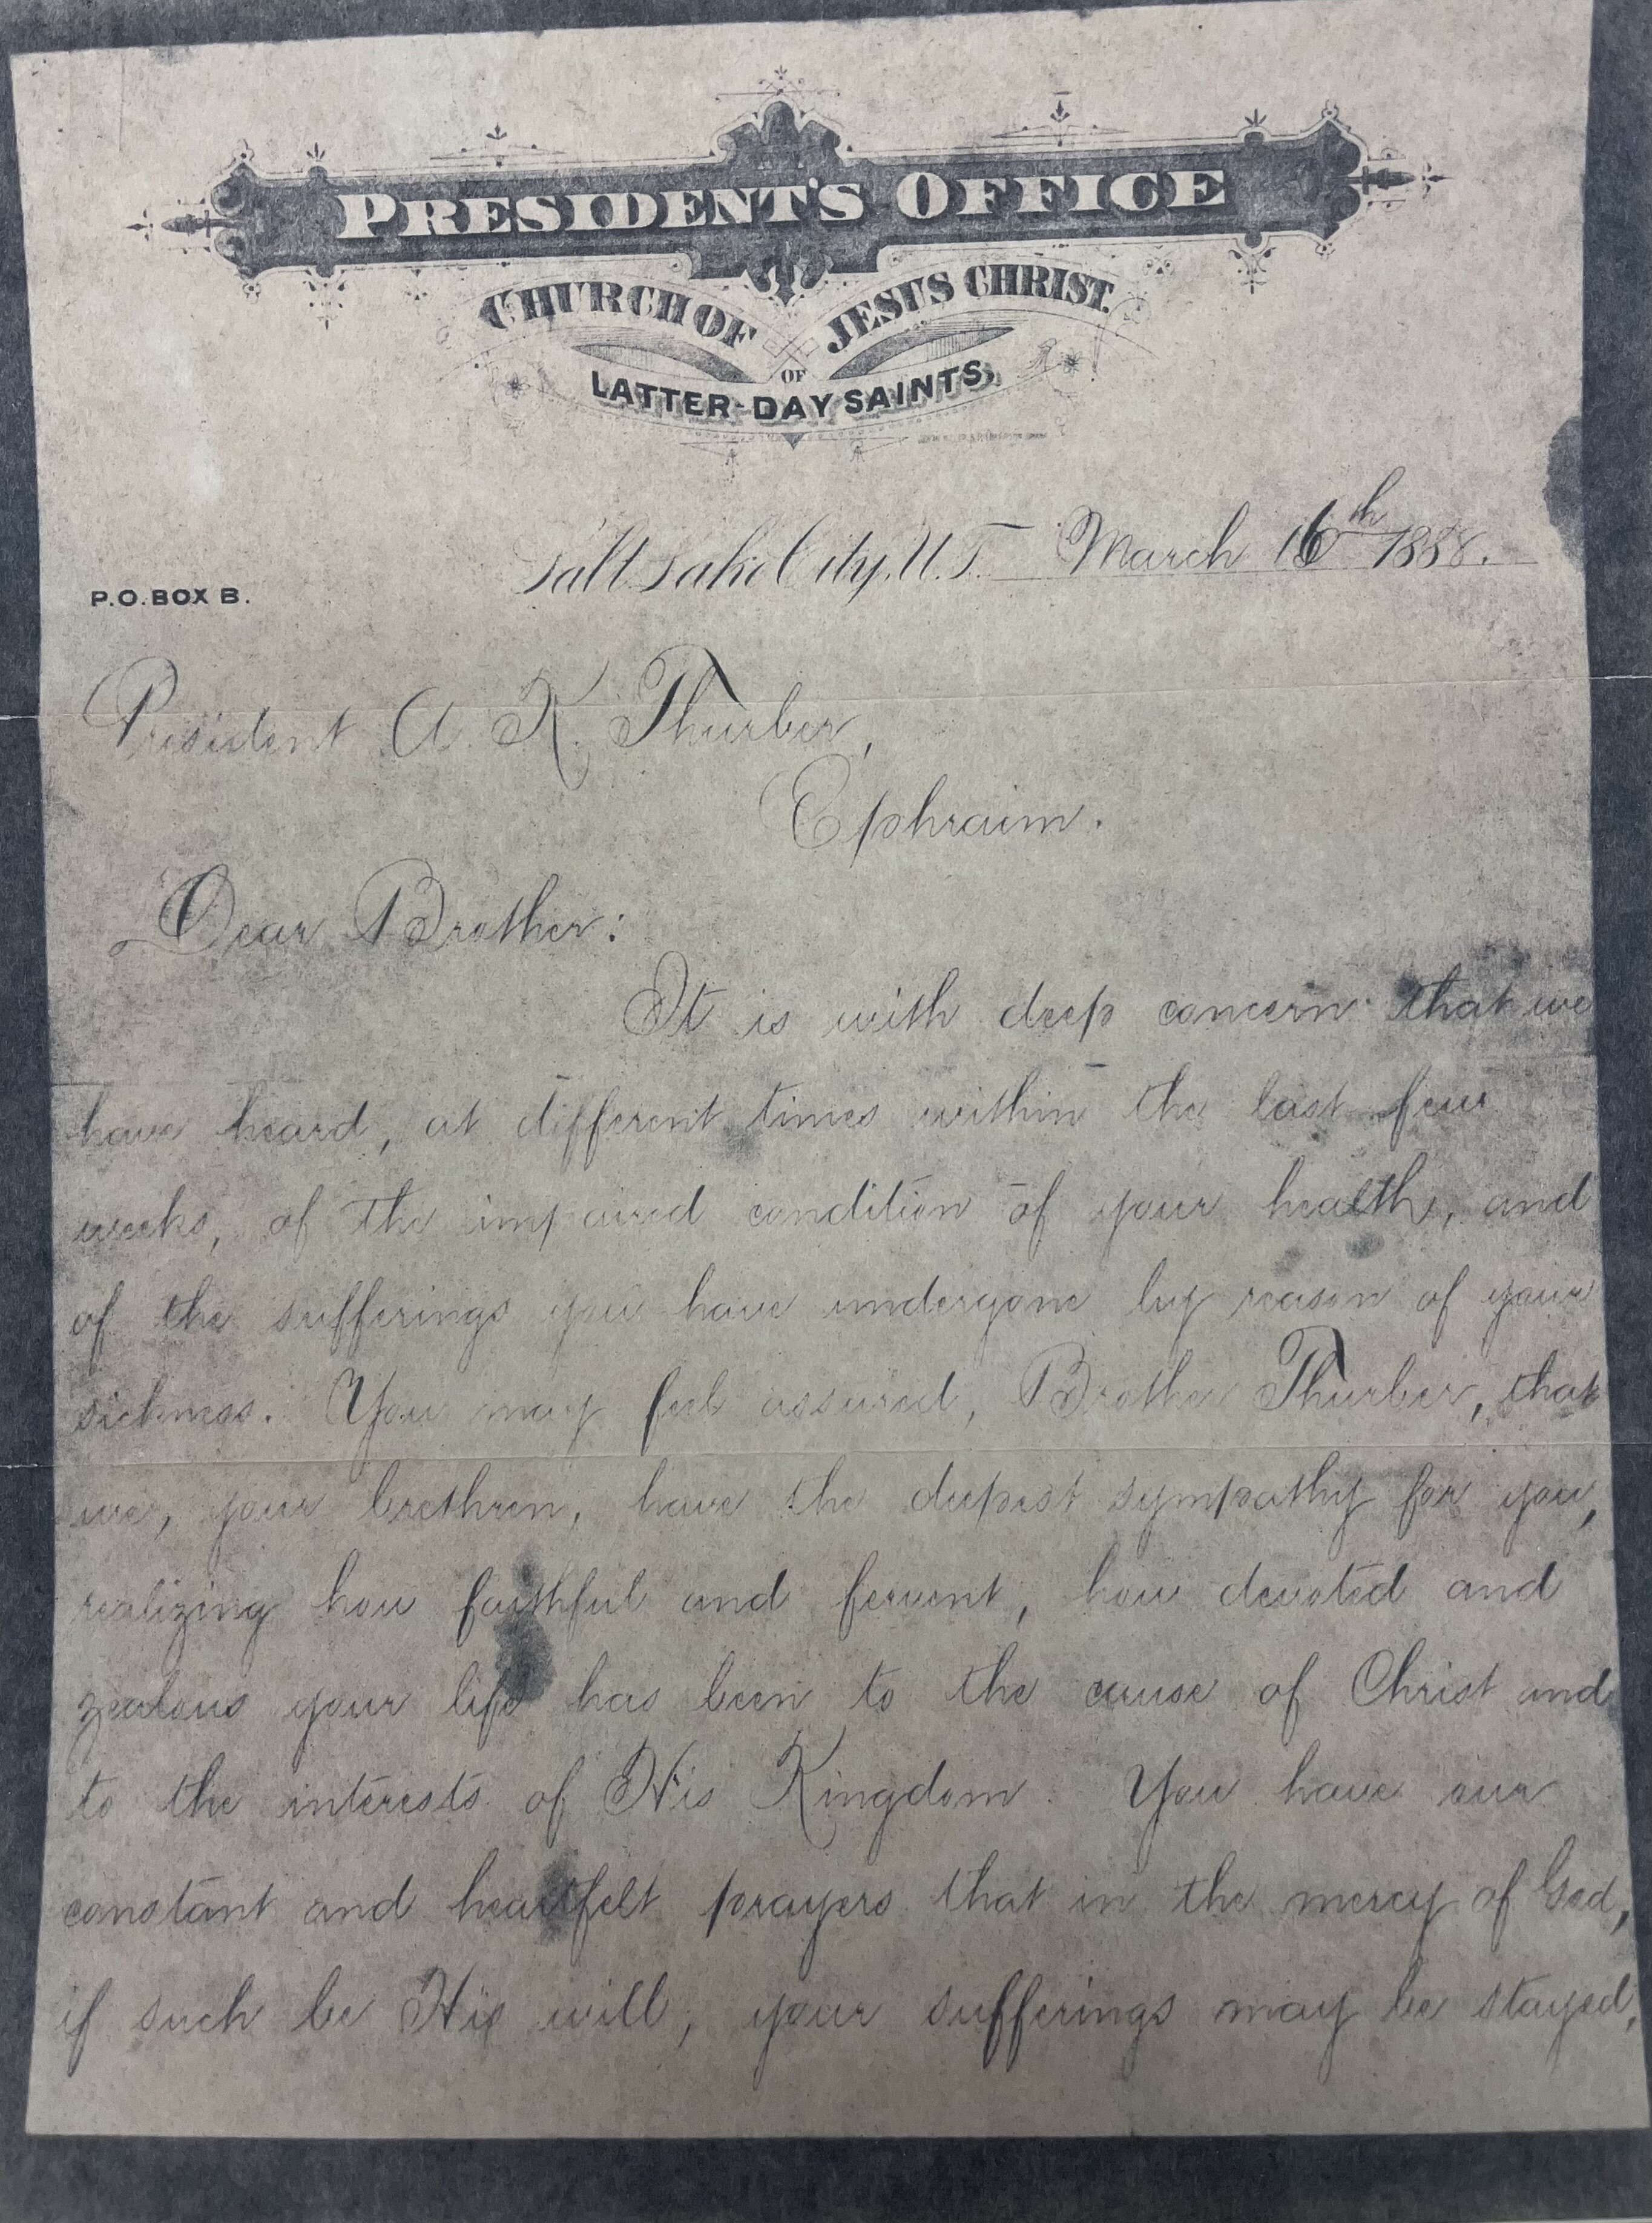 PRESIDENT'S OFFICE
CHURCH OF JESUS CHRIST.
OF
LATTER-DAY SAINTS,
Salt Lake City, U.T. March 16th 1888.
P.O. BOX B.
President A. K. Thurber,
Ephraim.
Dear Brother:
It is with deep concern that we
have heard, at different times within the last few
weeks, of the impaired condition of your health, and
of the sufferings you have undergone by reason of your
sickness. You may feel assured, Brother Thurber, that
we, your brethren, have the deepest sympathy for you,
realizing how faithful and fervent, how devoted and
zealous your life has been to the cause of Christ and
to the interests of His Kingdom. You have our
constant and heartfelt prayers that in the mercy of God,
if such be His will, your sufferings may be stayed,